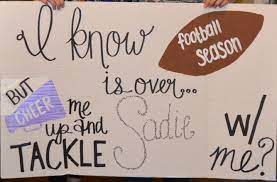 I know
football
season
is over...
BUT
CHEER me
up and Sadie w/
TACKLE me?